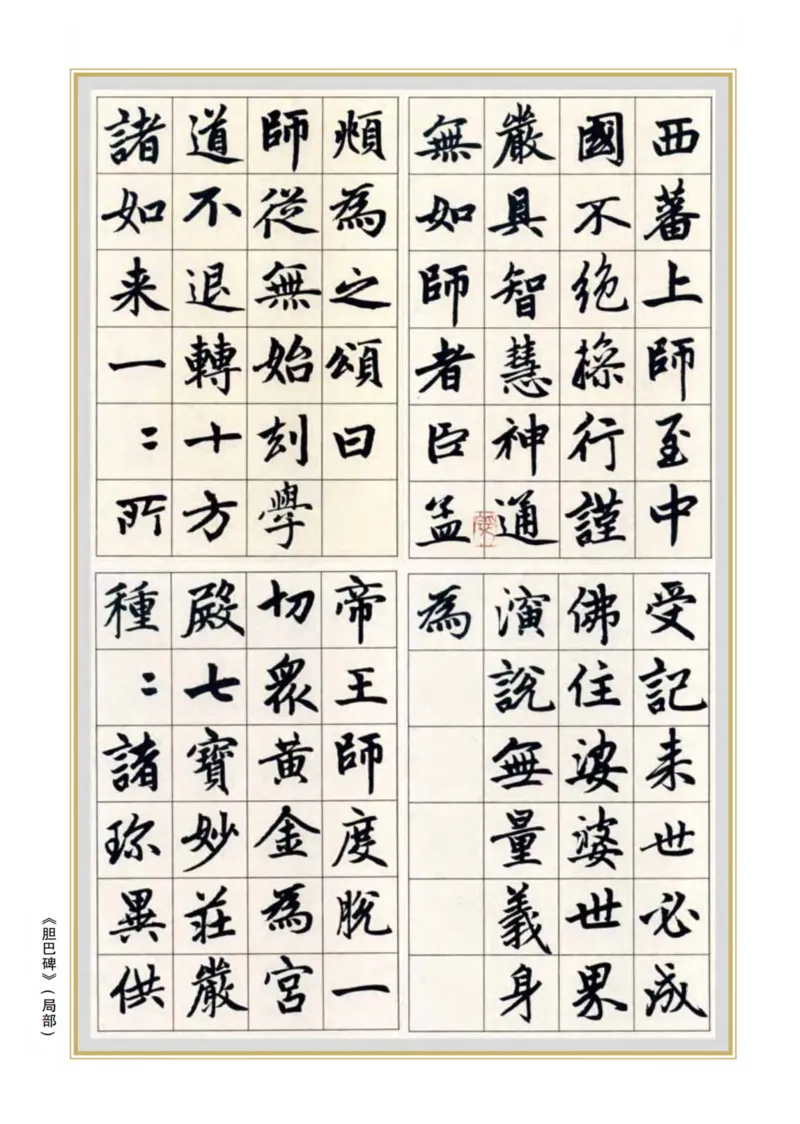 西蕃上師至中
國不絶操行謹
嚴具智慧神通
無如師者臣孟
頫為之頌曰
師從無始刼學
道不退轉十方
諸如来一二所
受記来世必成
佛住娑婆世界
演說無量義身
為
帝王師度脫一
切衆黄金為宮
殿七寶妙莊嚴
種二諸珎異供
《胆巴碑》(局部)